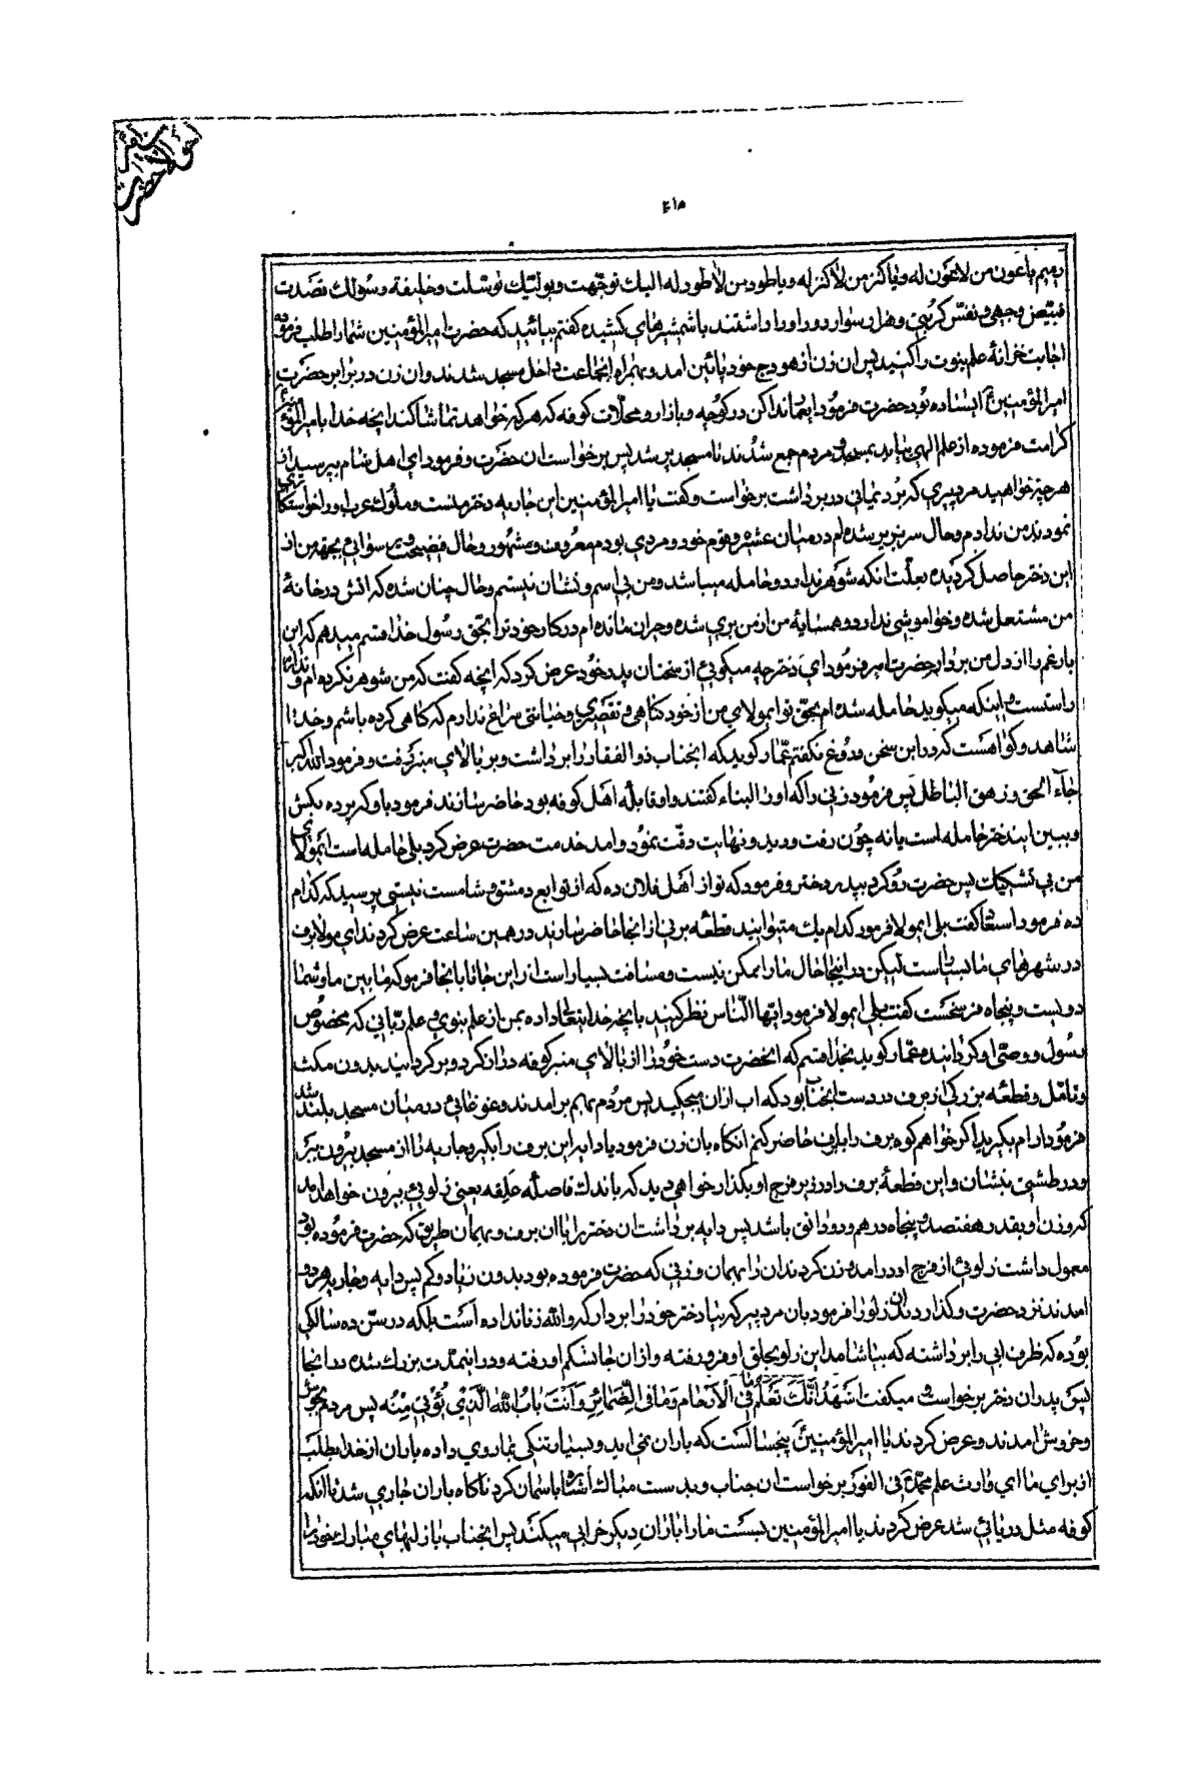 ۴۱۵
رمیم یا عون من لا عون له و یا کنز من لا کنز له و یا طود من لا طود له الیك توجّهت و بولیّك توسّلت و خلیفة رسولك قصدت
فبیّض وجهی و نفّس کربتی و هزار سوار دور او را داشتند با شمشیرهای کشیده گفتم بیائید که حضرت امیرالمؤمنین شما را طلب فرموده
اجابت خزانهٔ علم نبوت را کنید پس ان زن از هودج خود پائین امد و بهمراه انجماعت داخل مسجد شدند و ان زن در برابر حضرت
امیرالمؤمنین ع ایستاده بود حضرت فرمود ایعمّار نداکن در کوچه و بازار و محلّات کوفه که هر که خواهد تماشا کند انچه خدا بامیرالمؤمنین
کرامت فرموده از علم الهی بیاید بمسجد و مردم جمع شدند تا مسجد پر شد پس برخواست ان حضرت و فرمود ای اهل شام بپرسید از
هر چیز خواهید مرد پیری که برد یمانی در بر داشت برخواست و گفت یا امیرالمؤمنین این جاریه دختر منست و ملوك عرب او را خواستگاری
نمودند من ندادم و حال سر بزیر شده‌ام در میان عشیره و قوم خود و مردی بودم معروف و مشهور و حال فضیحت و رسوائی بجهة من از
این دختر حاصل گردیده بعلّت انکه شوهر ندارد و حامله میباشد و من بی اسم و نشان نیستم و حال چنان شده که اتش در خانهٔ
من مشتعل شده و خواموشی ندارد و همسایهٔ من از من بری شده و حیران مانده‌ام در کار خود ترا بحق رسول خدا قسم میدهم که این
بار غم را از دل من بردار حضرت امیر فرمود ای دختر چه میگوئی از سخنان پدر خود عرض کرد که انچه گفت که من شوهر نکرده‌ام و ندارم
راستست و اینکه میگوید حامله شده‌ام بحق تو ایمولای من از خود گناهی و تقصیری و خیانتی سراغ ندارم که گناهی کرده باشم و خدا
شاهد و گواهست که در این سخن دروغ نگفتم عمّار گوید که انجناب ذوالفقار را برداشت و بر بالای منبر گرفت و فرمود الله اکبر
جآء الحق و زهق الباطل پس فرمود زنی را که او را لبناء گفتند و او قابلهٔ اهل کوفه بود حاضر سازند فرمود باو که پرده بکش
و ببین ایندختر حامله است یا نه چون رفت و دید و نهایت دقّت نمود و امد خدمت حضرت عرض کرد بلی حامله است ایمولای
من بی تشکیك پس حضرت رو کرد بپدر دختر و فرمود که تو از اهل فلان ده که از توابع دمشق شامست نیستی پرسید که کدام
ده فرمود اسعا گفت بلی ایمولا فرمود کدام یك میتوانید قطعه برفی از انجا حاضر سازید در همین ساعت عرض کردند ای مولا برف
در شهرهای ما بسیار است لیکن در اینجا حال ما را ممکن نیست و مسافت بسیار است از این جا تا بانجا فرمود که مابین ما و شما
دویست و پنجاه فرسخست گفت بلی ایمولا فرمود ایّها النّاس نظر کنید بانچه خدایتعالی داده بمن از علم نبوی و علم ربّانی که مخصوص
رسول و وصیّ او گردانیده عمّار گوید بخدا قسم که انحضرت دست خود را از بالای منبر کوفه دراز کرد و برگردانید بدون مکث
و تامّل و قطعه بزرگی از برف در دست انجناب بود که اب ازان میچکید پس مردم بهم برامدند و غوغائی در میان مسجد بلند شد
فرمود ارام بگیرید اگر خواهم کوه برف را باطراف حاضر کنم انگاه بان زن فرمود یا دایه این برف را بگیر و جاریه را از مسجد بیرون ببر
و در طشتی بنشان و این قطعهٔ برف را در زیر فرج او بگذار خواهی دید که باندك فاصله علقه یعنی زلوئی بیرون خواهد امد
که وزن او بقدر هفتصد و پنجاه درهم و دو دانق باشد پس دایه برداشت ان دختر را با ان برف و بهمان طریق که حضرت فرموده بود
معمول داشت زلوئی از فرج او درامد وزن کردند ان را بهمان وزنی که حضرت فرموده بود بدون زیاد و کم پس دایه و جاریه هر دو
امدند نزد حضرت و گذاردند ان زلو را فرمود بان مرد پیر که بیا دختر خود را بردار که والله زنا نداده است بلکه در سن ده سالگی
بوده که ظرف ابی را برداشته که بیاشامد این زلو بحلق او فرو رفته و ازان جا بشکم او رفته و در اینمدّت بزرك شده در انجا
پس پدر ان دختر برخواست و میگفت اَشهَدُ اَنَّكَ تَعلَمُ مٰا فِی الاَرحٰامِ وَ مٰا فِی الضَّمٰائِرِ وَ اَنتَ بٰابُ اللهِ الَّذی یُؤتیٰ مِنهُ پس مردم بجوش
و خروش امدند و عرض کردند یا امیرالمؤمنین پنجسالست که باران نمی‌اید و بسیار تنگی بما روی داده باران از خدا بطلب
از برای ما ای وارث علم محمّد ص فی الفور برخواست ان جناب و بدست مبارك اشاره باسمان کرد ناگاه باران جاری شد تا انکه
کوفه مثل دریائی شد عرض کردند یا امیرالمؤمنین بسست ما را باران دیگر خرابی میکند پس انجناب باز لبهای مبارك خود را